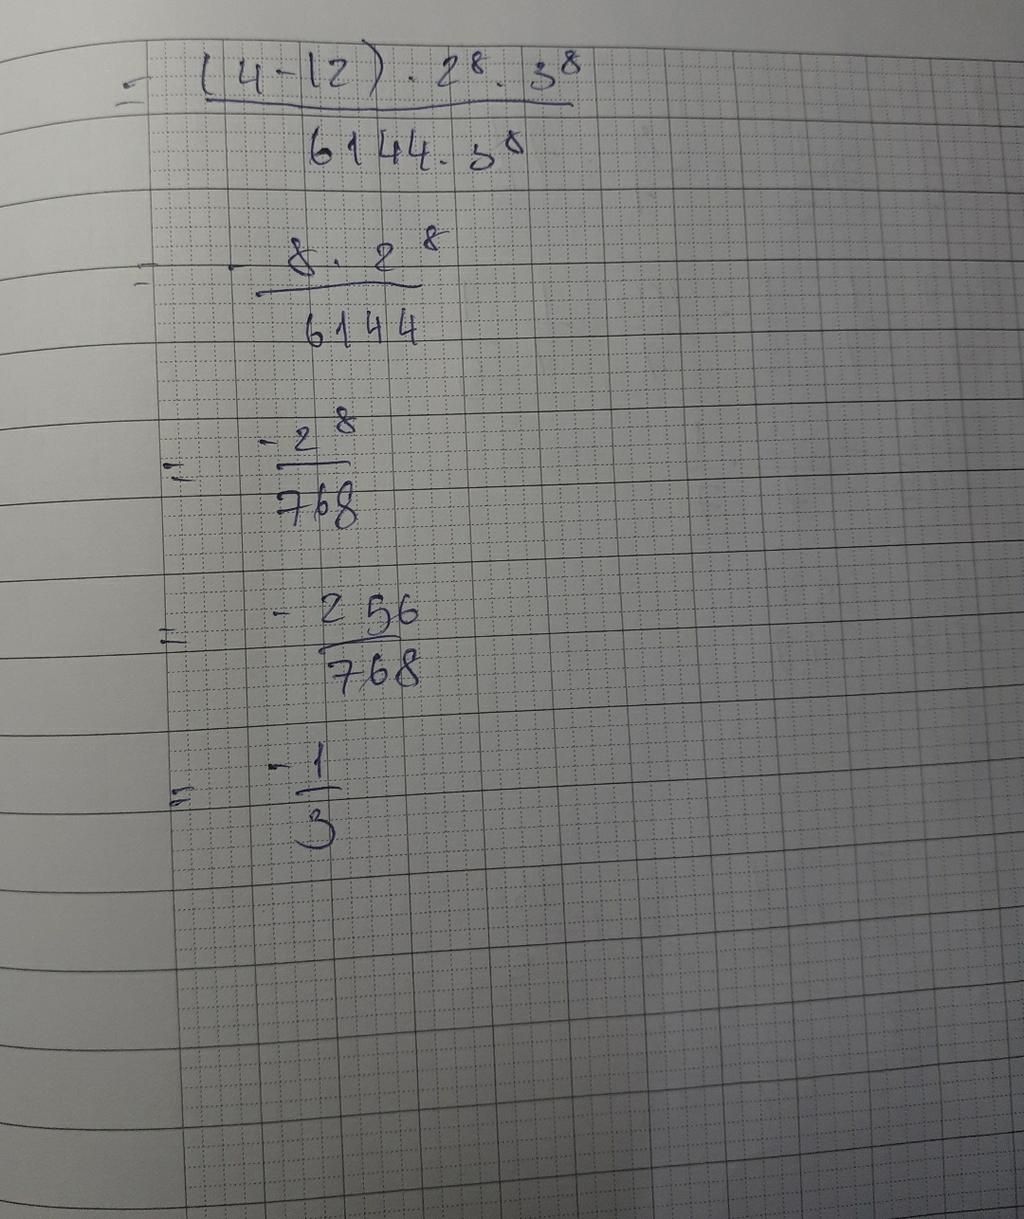 = (4-12) · 2⁸ · 3⁸
6144 · 3⁸
= - 8 · 2⁸
6144
= -2⁸
768
= - 256
768
= -1
3